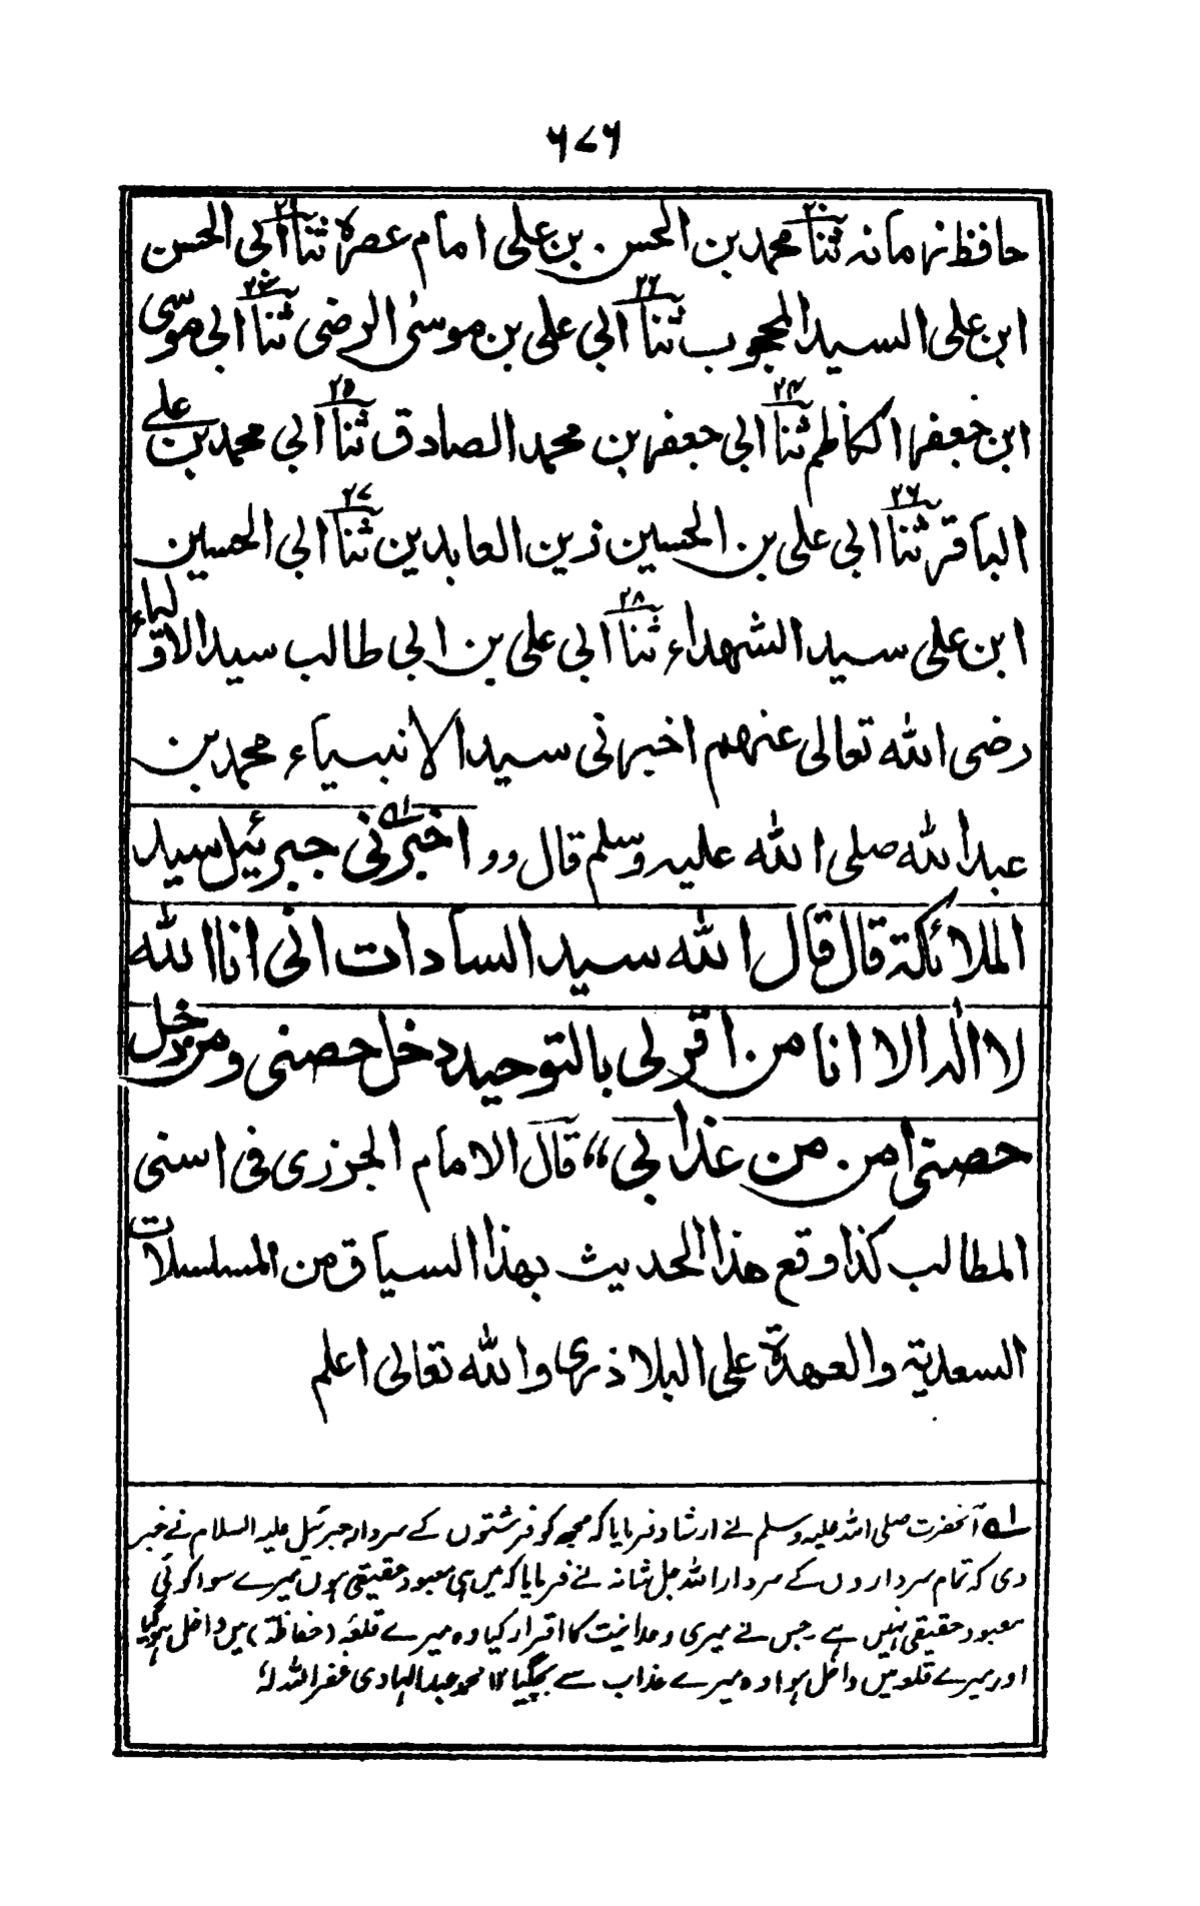 ۶۷۶
حافظ زمانہ ثنا۲۰ محمد بن الحسن بن علی امام عصرہ ثنا۲۱ ابی الحسن
ابن علی السید المحجوب ثنا۲۲ ابی علی بن موسیٰ الرضی ثنا۲۳ ابی موسی
ابن جعفر الکاظم ثنا۲۴ ابی جعفر بن محمد الصادق ثنا۲۵ ابی محمد بن علی
الباقر ثنا۲۶ ابی علی بن الحسین زین العابدین ثنا۲۷ ابی الحسین
ابن علی سید الشہداء ثنا۲۸ ابی علی بن ابی طالب سید الاولیاء
رضی اللہ تعالی عنہم اخبرنی سید الانبیاء محمد بن
عبد اللہ صلی اللہ علیہ وسلم قال ،، اخبرنی؂۱ جبرئیل سید
الملائکۃ قال قال اللہ سید السادات انی انا اللہ
لا الٰہ الا انا من اقر لی بالتوحید دخل حصنی ومن دخل
حصنی امن من عذابی ،، قال الامام الجزری فی اسنی
المطالب کذا وقع ھذا الحدیث بھذا السیاق من المسلسلات
السعدیۃ والعھدۃ علی البلاذری واللہ تعالی اعلم
؂۱ آنحضرت صلی اللہ علیہ وسلم نے ارشاد فرمایا کہ مجھ کو فرشتوں کے سردار جبرئیل علیہ السلام نے خبر
دی کہ تمام سرداروں کے سردار اللہ جل شانہ نے فرمایا کہ میں ہی معبود حقیقی ہوں میرے سوا کوئی
معبود حقیقی نہیں ہے جس نے میری وحدانیت کا اقرار کیا وہ میرے قلعہ (حفاظۃ) میں داخل ہوگیا
اور میرے قلعہ میں داخل ہوا وہ میرے عذاب سے بچ گیا ۱۲ محمد عبد الہادی غفر اللہ لہٗ